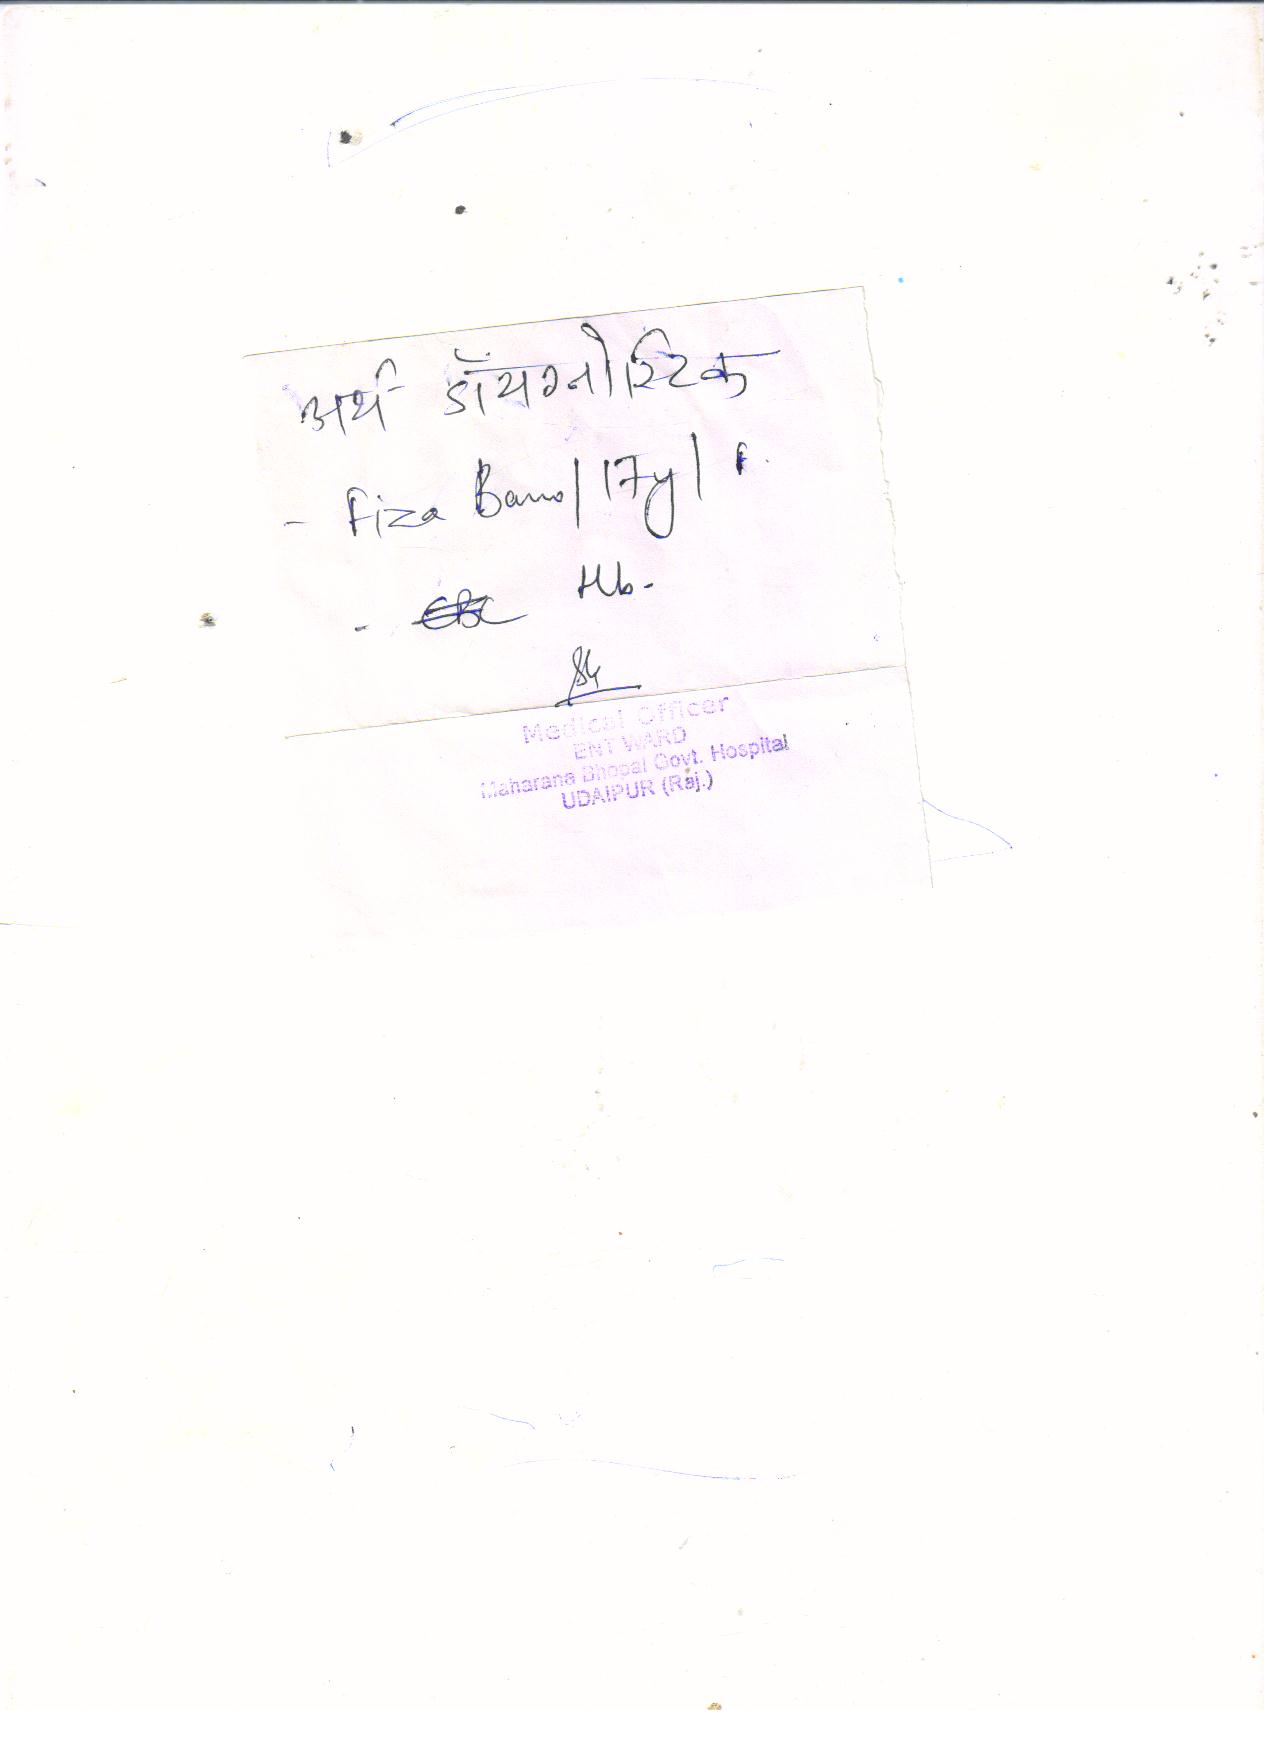 अर्थ डॉयग्नोस्टिक
- Fiza Bano / 17y / F.
- CBC Hb.
Medical Officer
ENT WARD
Maharana Bhopal Govt. Hospital
UDAIPUR (Raj.)